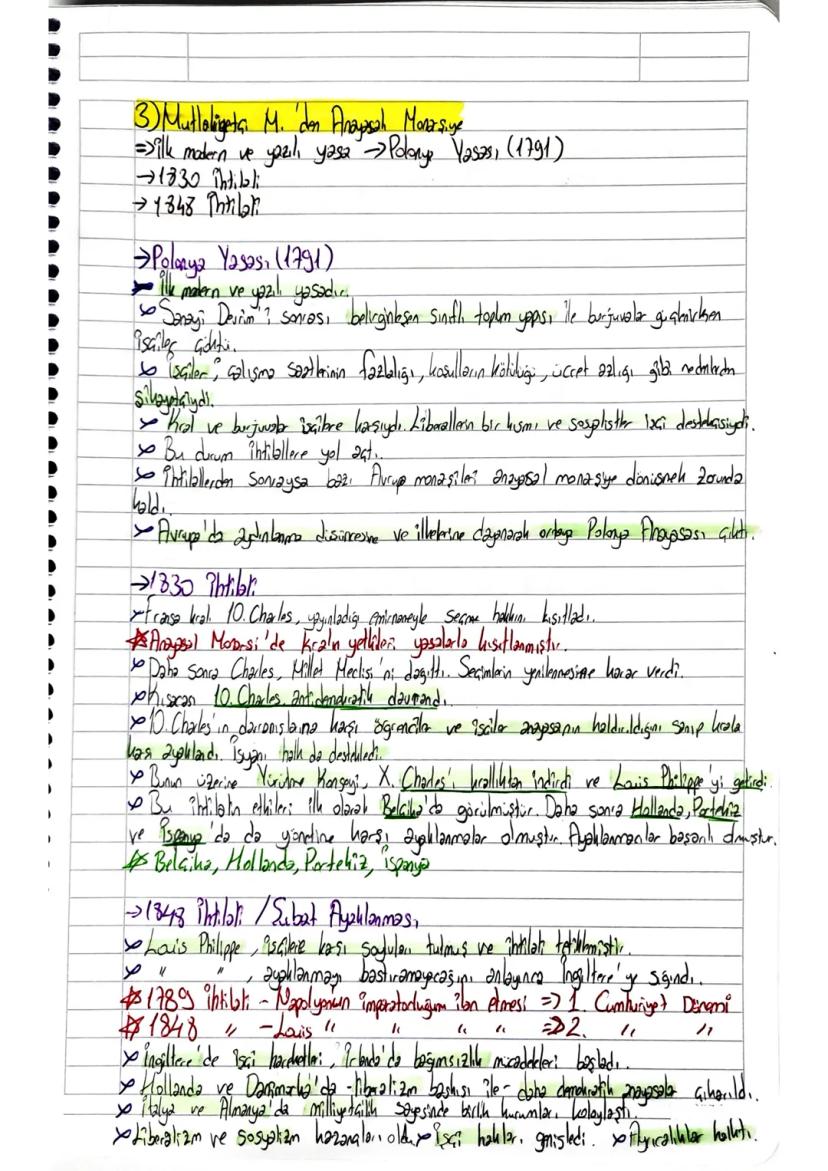 3) Mutlakiyetçi M.'den Anayasal Monarşiye
=> İlk modern ve yazılı yasa → Polonya Yasası (1791)
→ 1830 İhtilali
→ 1848 İhtilali
→ Polonya Yasası (1791)
İlk modern ve yazılı yasadır.
Sanayi Devrimi sonrası belirginleşen sınıflı toplum yapısı ile burjuvalar güçlenirken
işçiler çöktü.
İşçiler; çalışma saatlerinin fazlalığı, koşulların kötülüğü, ücret azlığı gibi nedenlerden
şikayetçiydi.
Kral ve burjuvalar işçilere karşıydı. Liberallerin bir kısmı ve sosyalistler işçi destekçisiydi.
Bu durum ihtilallere yol açtı.
İhtilallerden sonraysa bazı Avrupa monarşileri anayasal monarşiye dönüşmek zorunda
kaldı.
Avrupa'da aydınlanma düşüncesine ve ilkelerine dayanarak ortaya Polonya Anayasası çıktı.
→ 1830 İhtilali
Fransa kralı 10. Charles, yayınladığı emirnameyle seçme hakkını kısıtladı.
Anayasal Monarşi'de kralın yetkileri yasalarla kısıtlanmıştır.
Daha sonra Charles, Millet Meclisi'ni dağıttı. Seçimlerin yenilenmesine karar verdi.
Kısacası 10. Charles antidemokratik davrandı.
10. Charles'ın davranışlarına karşı öğrenciler ve işçiler anayasanın kaldırıldığını sanıp krala
karşı ayaklandı. İsyanı halk da destekledi.
Bunun üzerine Yürütme Konseyi, X. Charles'ı krallıktan indirdi ve Louis Philippe'yi getirdi.
Bu ihtilalin etkileri ilk olarak Belçika'da görülmüştür. Daha sonra Hollanda, Portekiz
ve İspanya'da da yönetime karşı ayaklanmalar olmuştur. Ayaklanmalar başarılı olmuştur.
Belçika, Hollanda, Portekiz, İspanya
→ 1848 İhtilali / Şubat Ayaklanması
Louis Philippe, işçilere karşı soyluları tutmuş ve ihtilali tetiklemiştir.
" ", ayaklanmayı bastıramayacağını anlayınca İngiltere'ye sığındı.
1789 ihtilali - Napolyonun imparatorluğunu ilan etmesi => 1. Cumhuriyet Dönemi
1848 " - Louis " " " " => 2. " "
İngiltere'de işçi hareketleri, İrlanda'da bağımsızlık mücadeleleri başladı.
Hollanda ve Danimarka'da -liberalizm baskısı ile- daha demokratik anayasalar çıkarıldı.
İtalya ve Almanya'da milliyetçilik sayesinde birlik kurumları kolaylaştı.
Liberalizm ve sosyalizm kazananları oldu. İşçi hakları genişledi. Ayrıcalıklar kalktı.